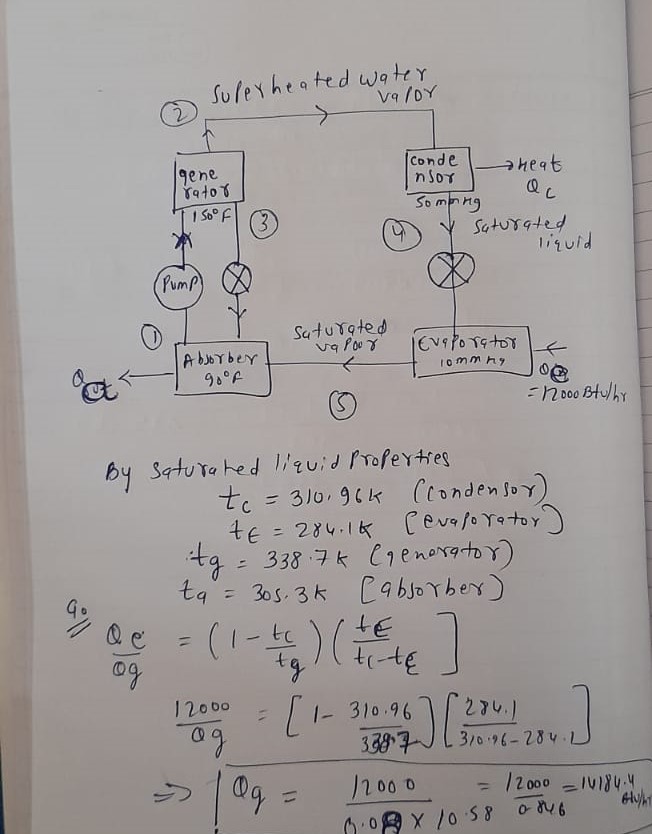 Superheated water
vapor
②
gene
rator
150°F
conde
nsor
50 mmHg
→ heat
Qc
③
④
saturated
liquid
Pump
①
Absorber
90°F
saturated
vapour
Evaporator
10mm Hg
Qe
= 12000 Btu/hr
⑤
By saturated liquid Properties
tc = 310.96k (condensor)
tE = 284.1k [evaporator)
tg = 338.7k (generator)
ta = 305.3k [absorber)
Qe/Qg = (1 - tc/tg) ( tE/tc-tE ]
12000/Qg = [ 1 - 310.96/338.7 ] [ 284.1/310.96-284.1 ]
⇒ Qg = 12000/0.08 X 10.58 = 12000/0.846 = 14184.4 Btu/hr